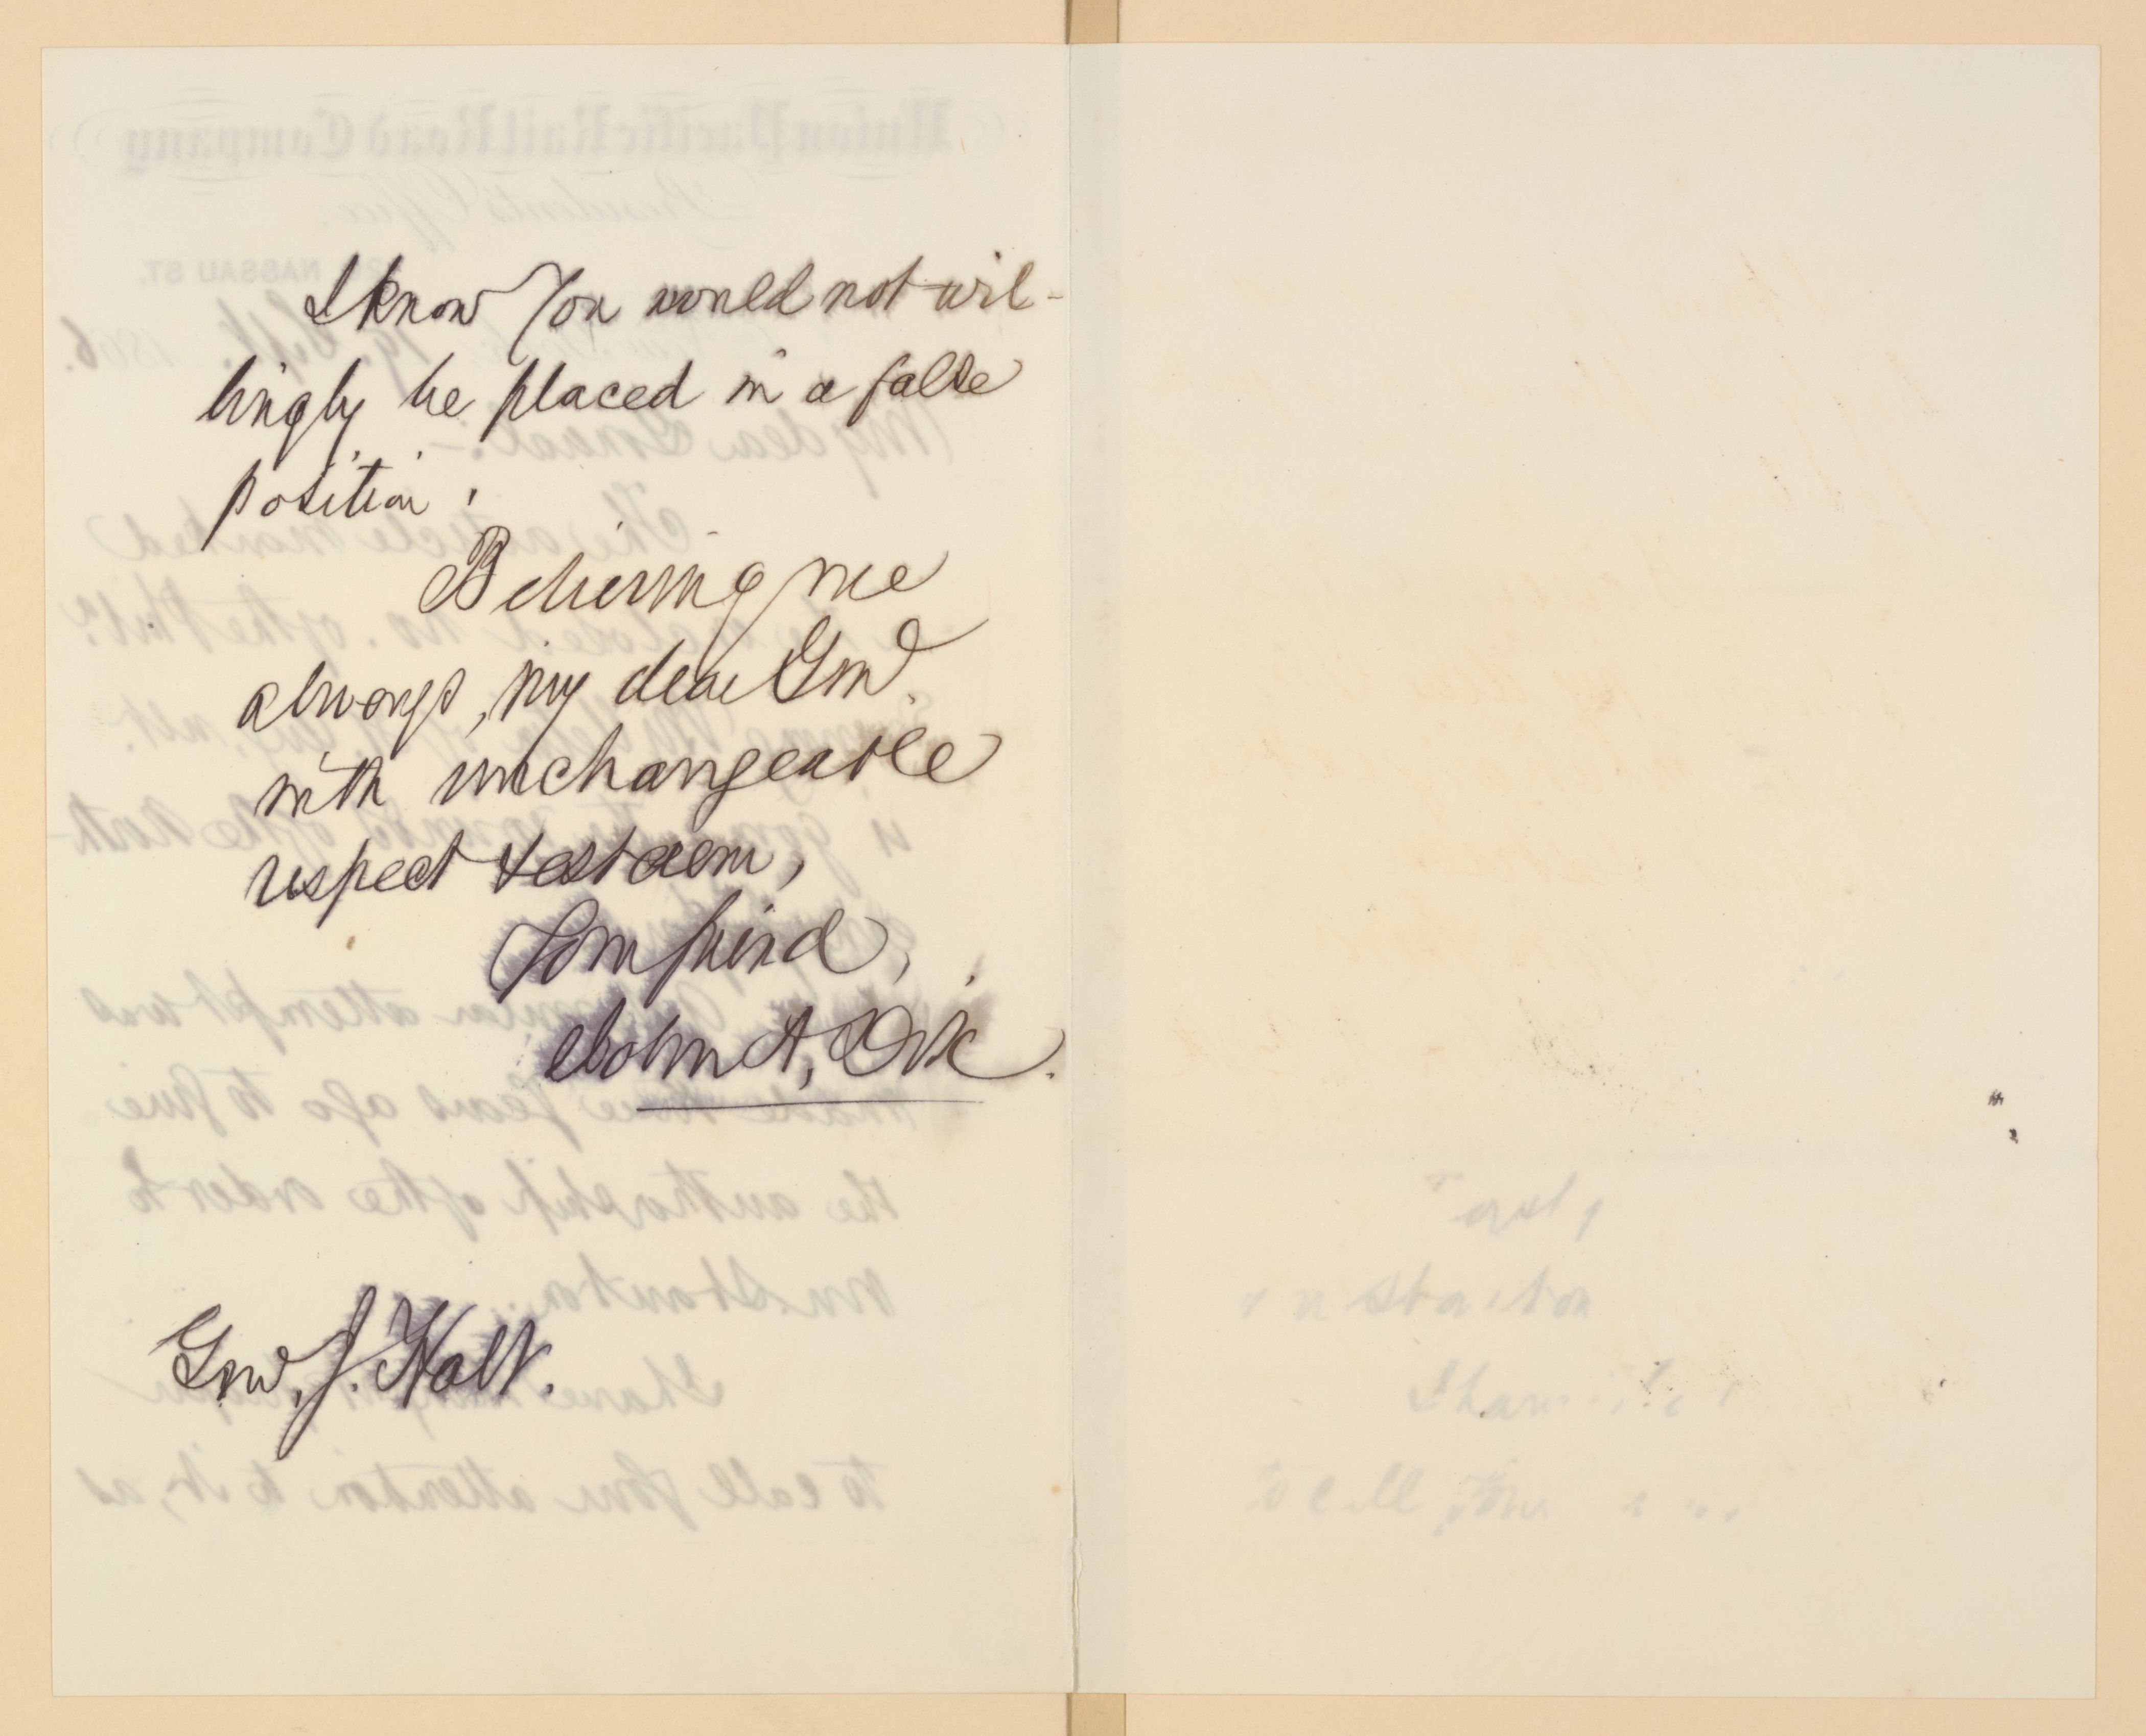 I know you would not wil-
lingly be placed in a false
position.
Believing me
always, my dear Genl.
with unchangeable
respect & esteem,
Your friend,
John A. Dix.
Genl. J. Holt.